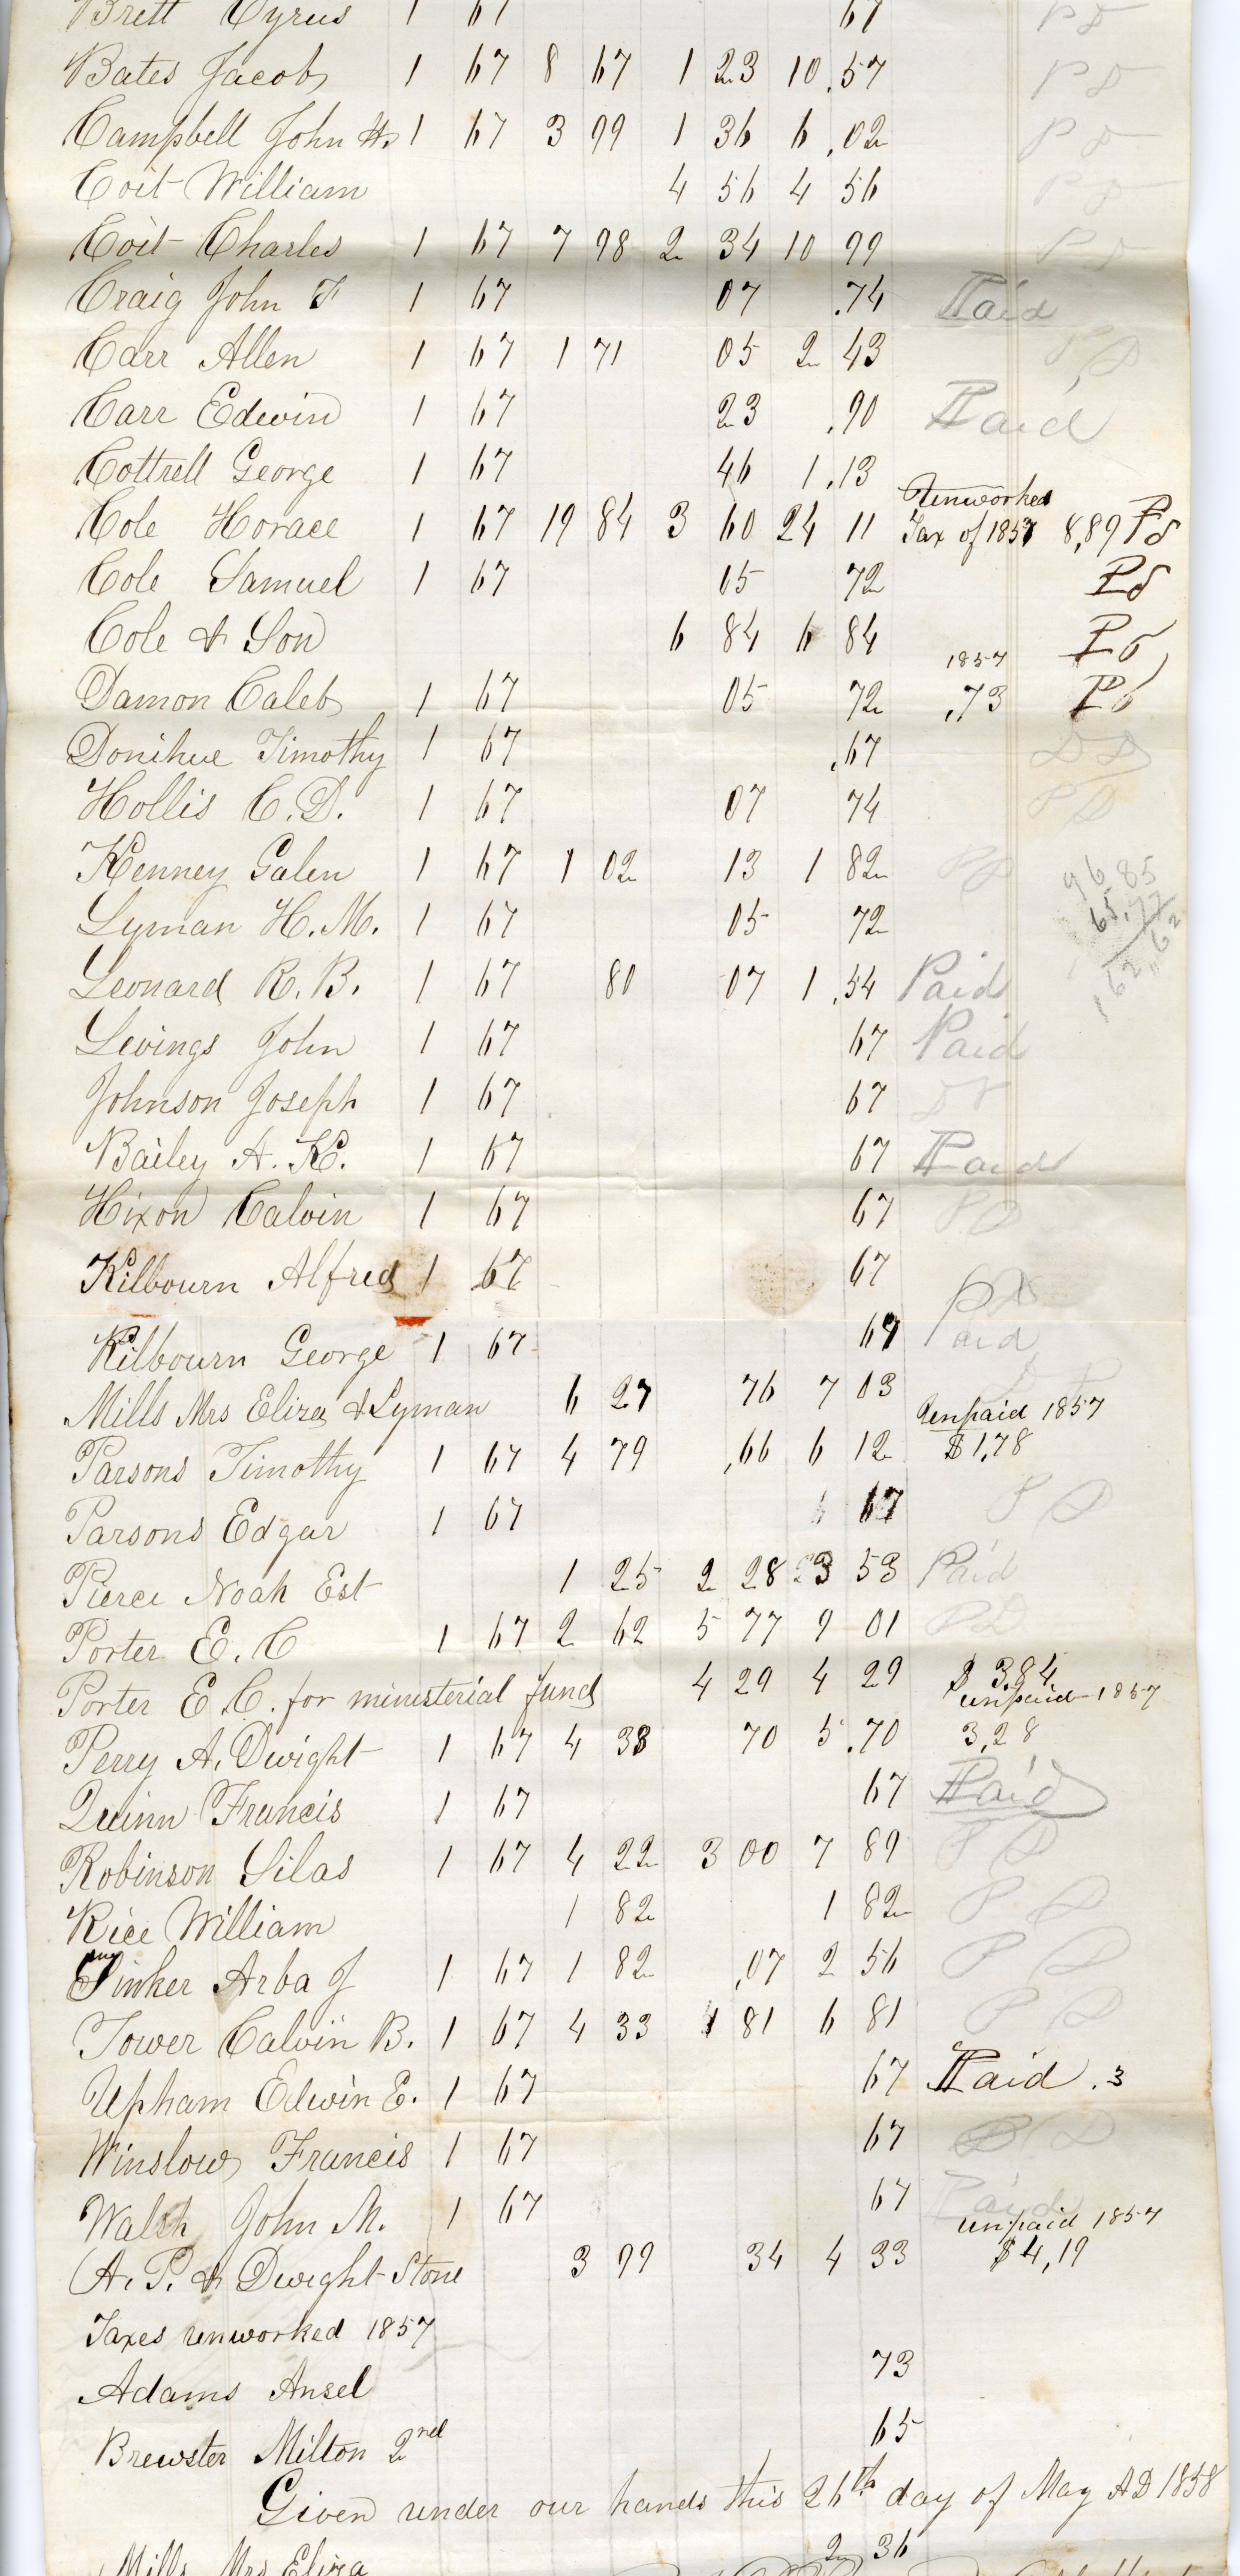 Brett Cyrus 1 67 67 Pd
Bates Jacob 1 67 8 67 1 23 10.57 Pd
Campbell John H. 1 67 3 99 1 36 6.02 Pd
Coit William 4 56 4 56 Pd
Coit Charles 1 67 7 98 2 34 10 99 Pd
Craig John F 1 67 07 .74 Paid
Carr Allen 1 67 1 71 05 2 43 Pd
Carr Edwin 1 67 23 .90 Paid
Cottrell George 1 67 46 1.13
Unworked
Cole Horace 1 67 19 84 3 60 24 11 Tax of 1857 8,89 Pd
Cole Samuel 1 67 05 72 Pd
Cole & Son 6 84 6 84 Pd
1857
Damon Caleb 1 67 05 72 ,73 Pd
Donihue Timothy 1 67 .67
Hollis C. D. 1 67 07 74 Pd
Kenney Galen 1 67 1 02 13 1 82 Pd
96.85
65.77
162,62
Lyman H. M. 1 67 05 72
Leonard R. B. 1 67 80 07 1.54 Paid
Levings John 1 67 67 Paid
Johnson Joseph 1 67 67
Bailey A. K. 1 67 67 Paid
Hixon Calvin 1 67 67 Pd
Kilbourn Alfred 1 67 67 Pd
Kilbourn George 1 67 67 Paid
Mills Mrs Eliza & Lyman 6 27 76 7 03
unpaid 1857
Parsons Timothy 1 67 4 79 ,66 6 12 $1,78
Parsons Edgar 1 67 67 Pd
Pierce Noah Est 1 25 2 28 3 53 Paid
Porter E. C 1 67 2 62 5 77 9 01 Pd
Porter E. C. for ministerial fund 4 29 4 29 $ 3.84
unpaid 1857
Perry A. Dwight 1 67 4 33 70 5.70 3,28
Quinn Francis 1 67 67 Paid
Robinson Silas 1 67 4 22 3 00 7 89 Pd
Rice William 1 82 1 82 Pd
Tinker Arba J 1 67 1 82 ,07 2 56 Pd
Tower Calvin B. 1 67 4 33 1 81 6 81 Pd
Upham Edwin E. 1 67 67 Paid .3
Winslow Francis 1 67 67 Pd
Walsh John M. 1 67 67 Paid
unpaid 1857
A. P. & Dwight Stone 3 99 34 4 33 $4,19
Taxes unworked 1857
Adams Ansel 73
Brewster Milton 2nd 65
Given under our hands this 26th day of May AD 1858
Mills Mrs Eliza 2 36